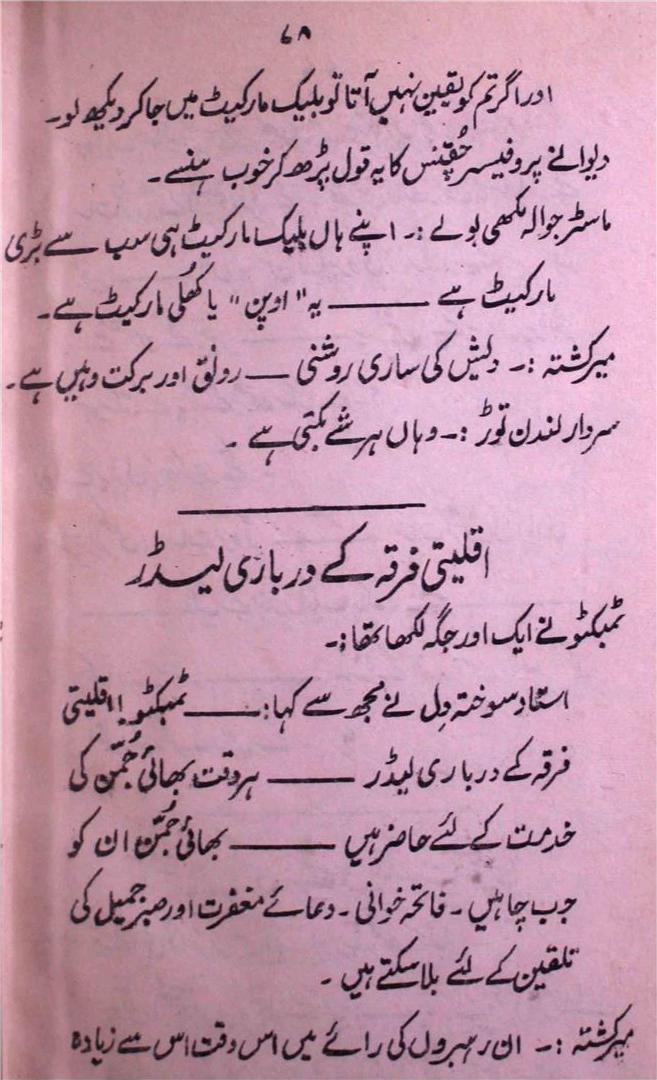 ۶۸
اور اگر تم کو یقین نہیں آتا تو بلیک مارکیٹ میں جا کر دیکھ لو۔
دیوانے پروفیسر حُقنِس کا یہ قول پڑھ کر خوب ہنسے۔
ماسٹر جوالہ مکھی بولے :۔ اپنے ہاں بلیک مارکیٹ ہی سب سے بڑی
مارکیٹ ہے ——— یہ "اوپن" یا کھُلی مارکیٹ ہے۔
میر کشتہ :۔ دلیش کی ساری روشنی — رونق اور برکت وہیں ہے۔
سردار لندن توڑ :۔ وہاں ہر شے بکتی ہے۔
اقلیتی فرقہ کے درباری لیڈر
ٹمبکٹو نے ایک اور جگہ لکھا تھا :۔
استاد سوختہ دِل نے مجھ سے کہا : —— ٹمبکٹو ! اقلیتی
فرقہ کے درباری لیڈر ——— ہر وقت بھائی جُمّن کی
خدمت کے لئے حاضر ہیں ——— بھائی جُمّن ان کو
جب چاہیں۔ فاتحہ خوانی۔ دعائے مغفرت اور صبر جمیل کی
تلقین کے لئے بلا سکتے ہیں۔
میر کشتہ :۔ ان رہبروں کی رائے میں اس وقت اس سے زیادہ